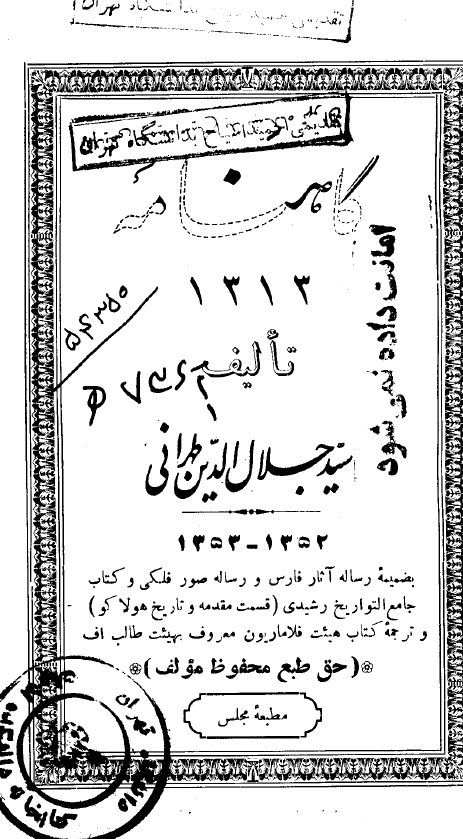 گاهنامه
۱۳۱۳
تألیف
سید جلال الدین طهرانی
۱۳۵۲ - ۱۳۵۳
بضمیمهٔ رساله آثار فارس و رساله صور فلکی و کتاب
جامع التواریخ رشیدی (قسمت مقدمه و تاریخ هولاکو)
و ترجمهٔ کتاب هیئت فلاماریون معروف بهیئت طالب اف
(حق طبع محفوظ مؤلف)
مطبعهٔ مجلس
امانت داده نمی شود
۵۴۳۵۰
تهران